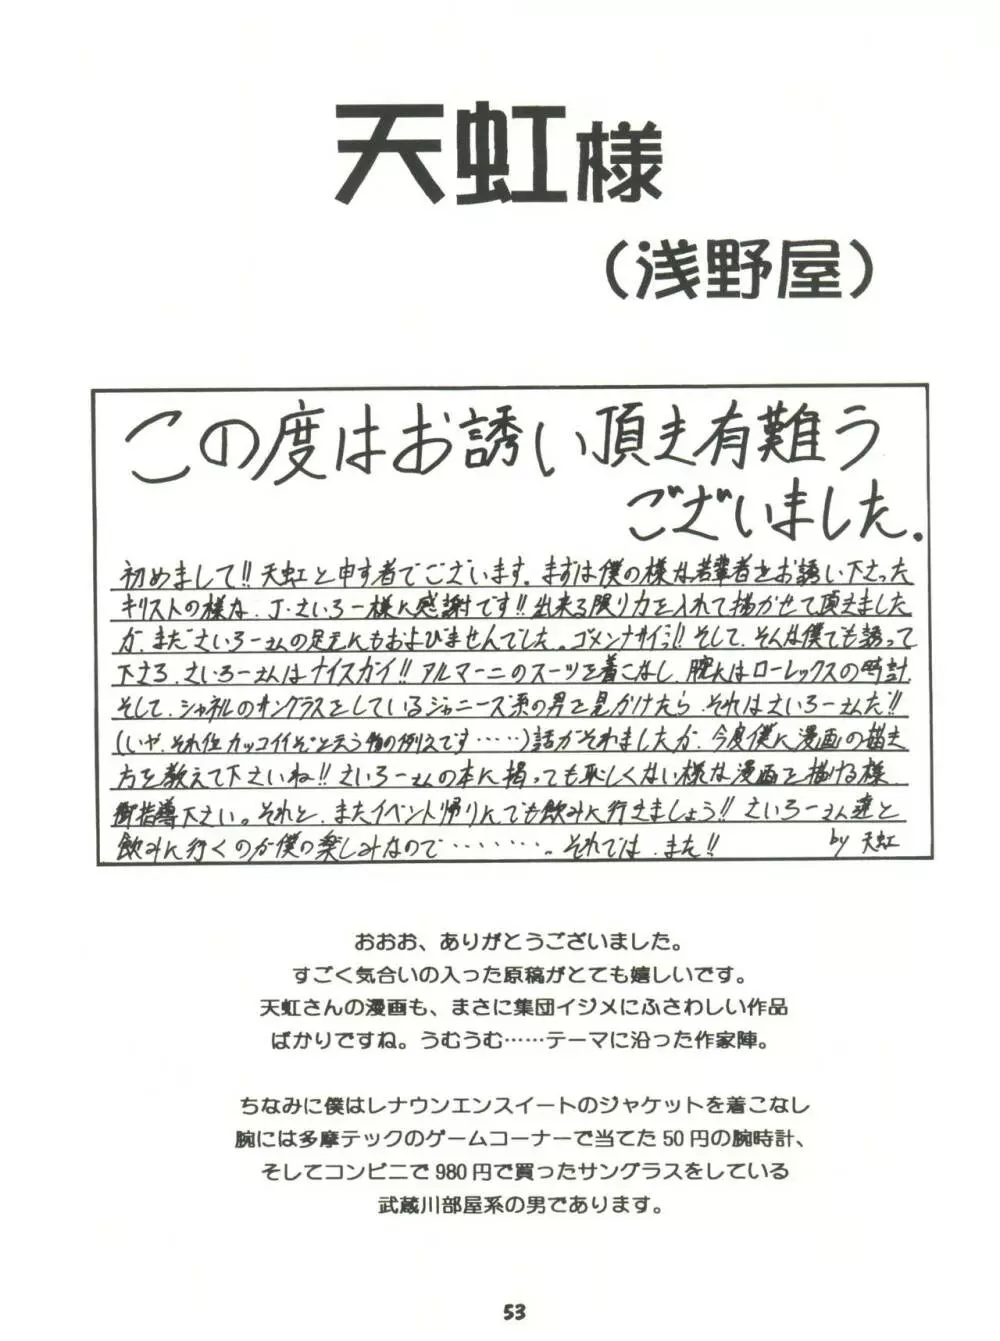 天虹様
（浅野屋）
この度はお誘い頂き有難う
ございました。
初めまして!! 天虹と申す者でございます。まずは僕の様な若輩者をお誘い下さった
キリストの様な、J・さいろー様に感謝です!! 出来る限り力を入れて描かせて頂きました
が、まださいろーさんの足元にもおよびませんでした。ゴメンナサイッ!! そして、そんな僕でも誘って
下さる、さいろーさんはナイスガイ!! アルマーニのスーツを着こなし、腕にはローレックスの時計、
そして、シャネルのサングラスをしているジャニーズ系の男を見かけたら、それはさいろーさんだ!!
(いや、それ位カッコイイぞと云う物の例えです……)話がそれましたが、今度僕に漫画の描き
方を教えて下さいね!! さいろーさんの本に掲っても恥しくない様な漫画を描ける様、
御指導下さい。それと、またイベント帰りにでも飲みに行きましょう!! さいろーさん達と
飲みに行くのが僕の楽しみなので………。それでは、また!! by 天虹
おおお、ありがとうございました。
すごく気合いの入った原稿がとても嬉しいです。
天虹さんの漫画も、まさに集団イジメにふさわしい作品
ばかりですね。うむうむ……テーマに沿った作家陣。
ちなみに僕はレナウンエンスイートのジャケットを着こなし
腕には多摩テックのゲームコーナーで当てた50円の腕時計、
そしてコンビニで980円で買ったサングラスをしている
武蔵川部屋系の男であります。
53